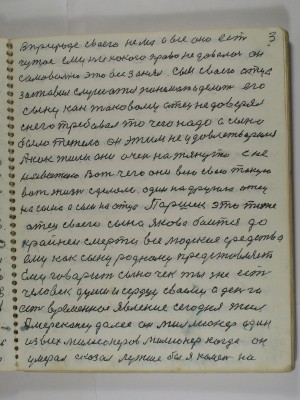 3
В природе своего нема а все оно есть
чужое ему никакого право не давалось он
самовольно это все занял. Сын своего отца
заставил слушатся начинать делать его
сыну как таковому отец не доверял
с него требовал то чего надо а сыну
было тяжело он этим не удовлетворился
А как жили они очень натянуто с не
Вот чего они всю свою такую
вот жизнь сделали. один на другого отец
на сына а сын на отца Паршик это тоже
отец своего сына Якова боится до
крайней смерти все людские средства
ему как сыну родному представляет
Ему говорит сыночек ты же есть
человек души и сердцу своему а деньги
есть временное явление сегодня жил
Американец далее он миллионер один
из всех миллионеров миллионер когда он
умерал сказал лучше бы я камень на